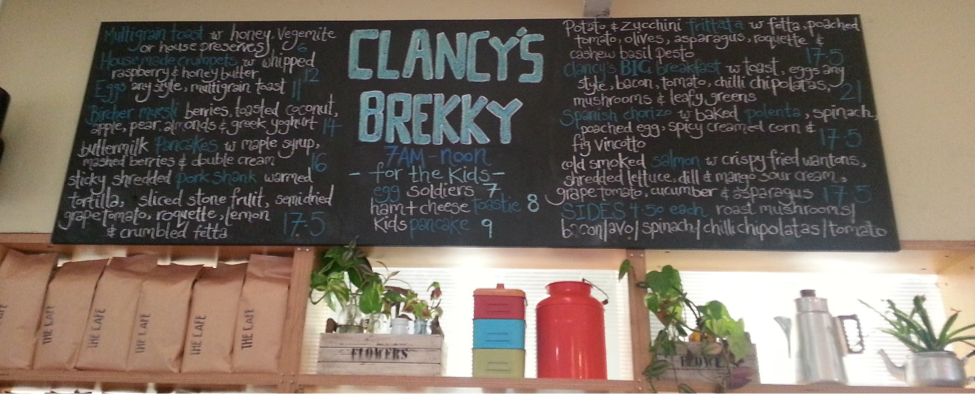 Multigrain toast w honey, Vegemite
or house preserves) 6
House made crumpets w whipped
raspberry & honey butter 12
Eggs any style, multigrain toast 11
Bircher muesli berries, toasted coconut,
apple, pear, almonds & greek yoghurt 14
buttermilk Pancakes w maple syrup,
mashed berries & double cream 16
sticky shredded pork shank warmed
tortilla, sliced stone fruit, sundried
grape tomato, roquette, lemon
& crumbled fetta 17.5
CLANCY'S
BREKKY
7AM - noon
- for the Kids -
egg soldiers 7
ham + cheese toastie 8
Kids pancake 9
Potato & Zucchini frittata w fetta, poached
tomato, olives, asparagus, roquette &
cashew basil pesto 17.5
Clancy's BIG breakfast w toast, eggs any
style, bacon, tomato, chilli chipolatas,
mushrooms & leafy greens 21
Spanish chorizo w baked polenta, spinach,
poached egg, spicy creamed corn &
fig vincotto 17.5
cold smoked salmon w crispy fried wantons,
shredded lettuce, dill & mango sour cream,
grape tomato, cucumber & asparagus 17.5
SIDES 4.50 each roast mushrooms/
bacon/avo/spinach/chilli chipolatas/tomato
THE CAFE
THE CAFE
THE CAFE
THE CAFE
THE CAFE
FLOWERS